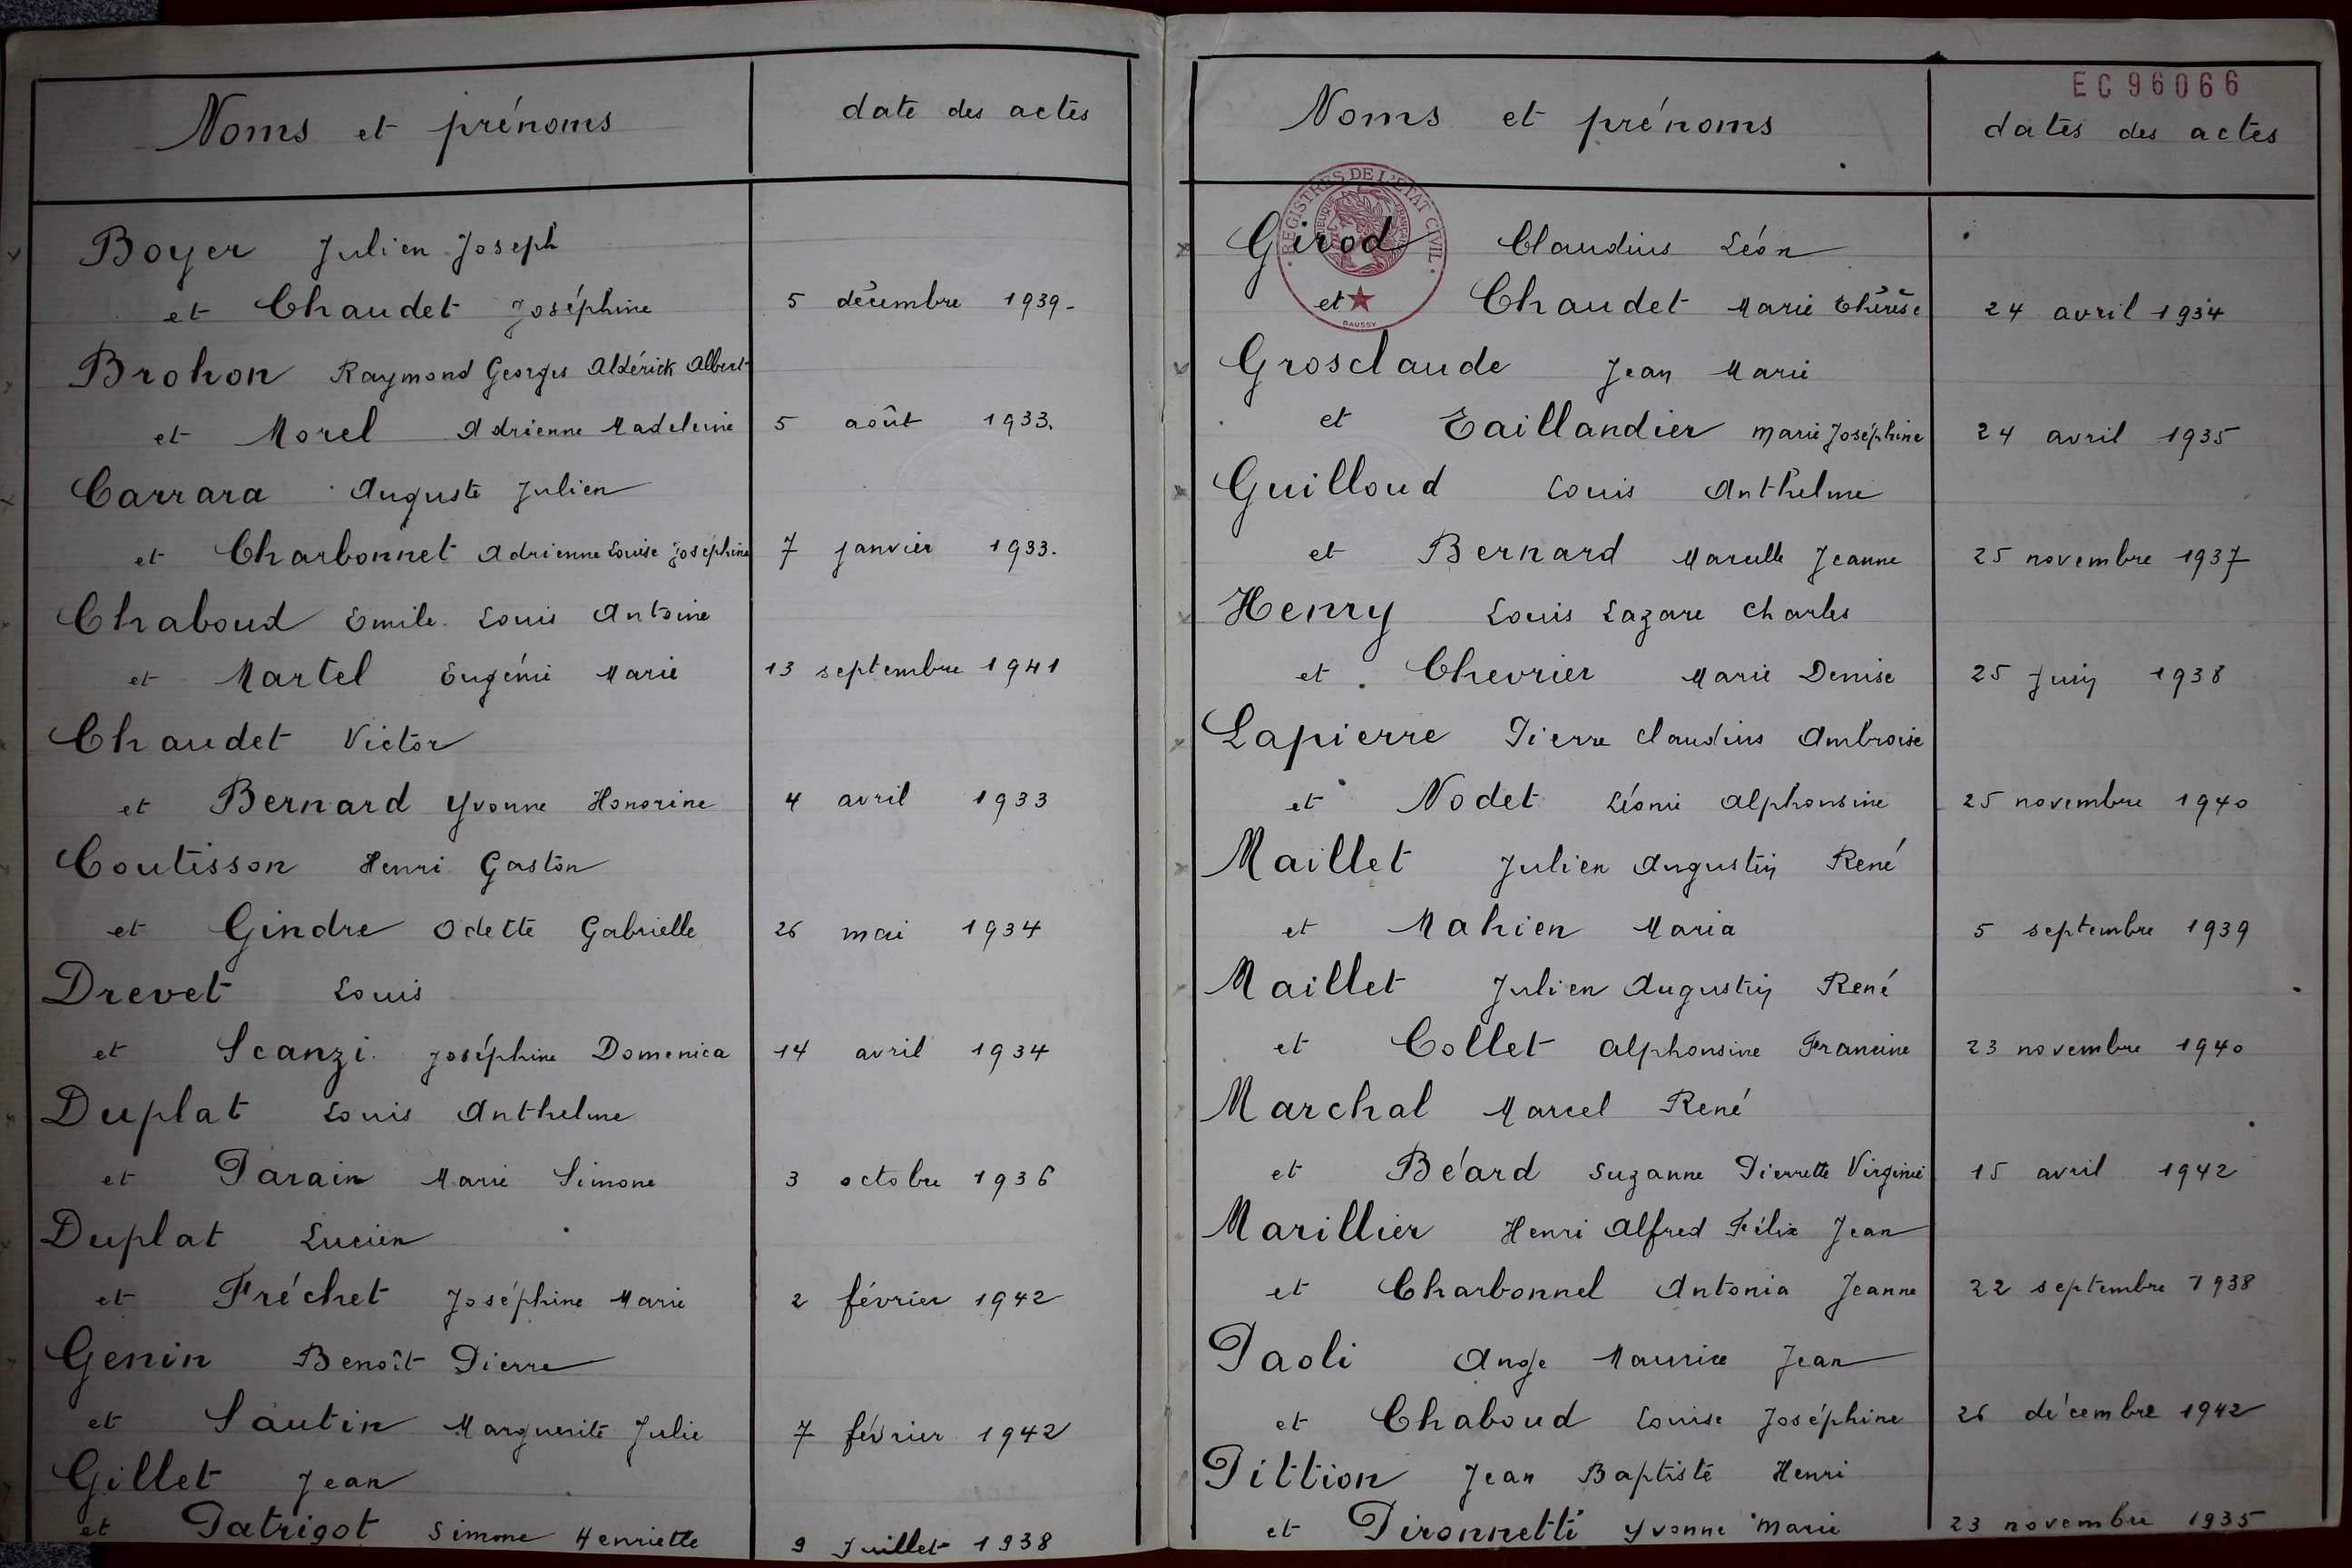 Noms et prénoms date des actes
Boyer Julien Joseph
et Chaudet Joséphine 5 décembre 1939-
Brohon Raymond Georges Aldérick Albert
et Morel Adrienne Madeleine 5 août 1933.
Carrara Auguste Julien
et Charbonnet Adrienne Louise Joséphine 7 janvier 1933.
Chaboud Emile Louis Antoine
et Martel Eugénie Marie 13 septembre 1941
Chaudet Victor
et Bernard Yvonne Honorine 4 avril 1933
Coutisson Henri Gaston
et Gindre Odette Gabrielle 26 mai 1934
Drevet Louis
et Scanzi Joséphine Domenica 14 avril 1934
Duplat Louis Anthelme
et Parain Marie Simone 3 octobre 1936
Duplat Lucien
et Fréchet Joséphine Marie 2 février 1942
Genin Benoît Pierre
et Sautin Marguerite Julie 7 février 1942
Gillet Jean
et Patrigot Simone Henriette 9 Juillet 1938
EC96066
Noms et prénoms dates des actes
REGISTRES DE L'ETAT CIVIL
DAUSSY
Girod Claudius Léon
et Chaudet Marie Thérèse 24 avril 1934
Grosclaude Jean Marie
et Taillandier Marie Joséphine 24 avril 1935
Guilloud Louis Anthelme
et Bernard Marcelle Jeanne 25 novembre 1937
Henry Louis Lazare Charles
et Chevrier Marie Denise 25 Juin 1938
Lapierre Pierre Claudius Ambroise
et Nodet Léonie Alphonsine 25 novembre 1940
Maillet Julien Augustin René
et Mahien Maria 5 septembre 1939
Maillet Julien Augustin René
et Collet Alphonsine Francine 23 novembre 1940
Marchal Marcel René
et Béard Suzanne Pierrette Virginie 15 avril 1942
Marillier Henri Alfred Félix Jean
et Charbonnel Antonia Jeanne 22 septembre 1938
Paoli Ange Maurice Jean
et Chaboud Louise Joséphine 26 décembre 1942
Pittion Jean Baptiste Henri
et Pironnetti Yvonne Marie 23 novembre 1935